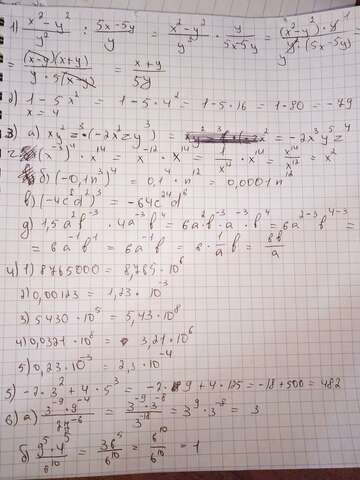 1) x²-y²/y² : 5x-5y/y = x²-y²/y² · y/5x-5y = (x²-y²)·y/y²·(5x-5y) =
= (x-y)(x+y)/y·5(x-y) = x+y/5y
2) 1-5x² = 1-5·4² = 1-5·16 = 1-80 = -79
x = 4
3) а) xy²·(-2x²zy³) = = -2x³y⁵z⁴
(x⁻³)⁴·x¹⁴ = x⁻¹²·x¹⁴ = 1/x¹²·x¹⁴ = x¹⁴/x¹² = x²
б) (-0,1n³)⁴ = 0,1⁴·n¹² = 0,0001n¹²
в) (-4c⁸d²)³ = -64c²⁴d⁶
д) 1,5a²b⁻³·4a⁻³b⁴ = 6a²b⁻³·a⁻³·b⁴ = 6a²⁻³b⁻³⁺⁴ =
= 6a⁻¹b¹ = 6a⁻¹b = 6·1/a b = 6b/a
4) 1) 8765000 = 8,765·10⁶
2) 0,00123 = 1,23·10⁻³
3) 5430·10⁵ = 5,43·10⁸
4) 0,0321·10⁸ = 3,21·10⁶
5) 0,23·10⁻³ = 2,3·10⁻⁴
5) -2·3²+4·5³ = -2·9+4·125 = -18+500 = 482
6) а) 3⁻⁹·9⁻⁴/27⁻⁶ = 3⁻⁹·3⁻⁸/3⁻¹⁸ = 3⁹·3⁻⁸ = 3
б) 9⁵·4⁵/6¹⁰ = 36⁵/6¹⁰ = 6¹⁰/6¹⁰ = 1